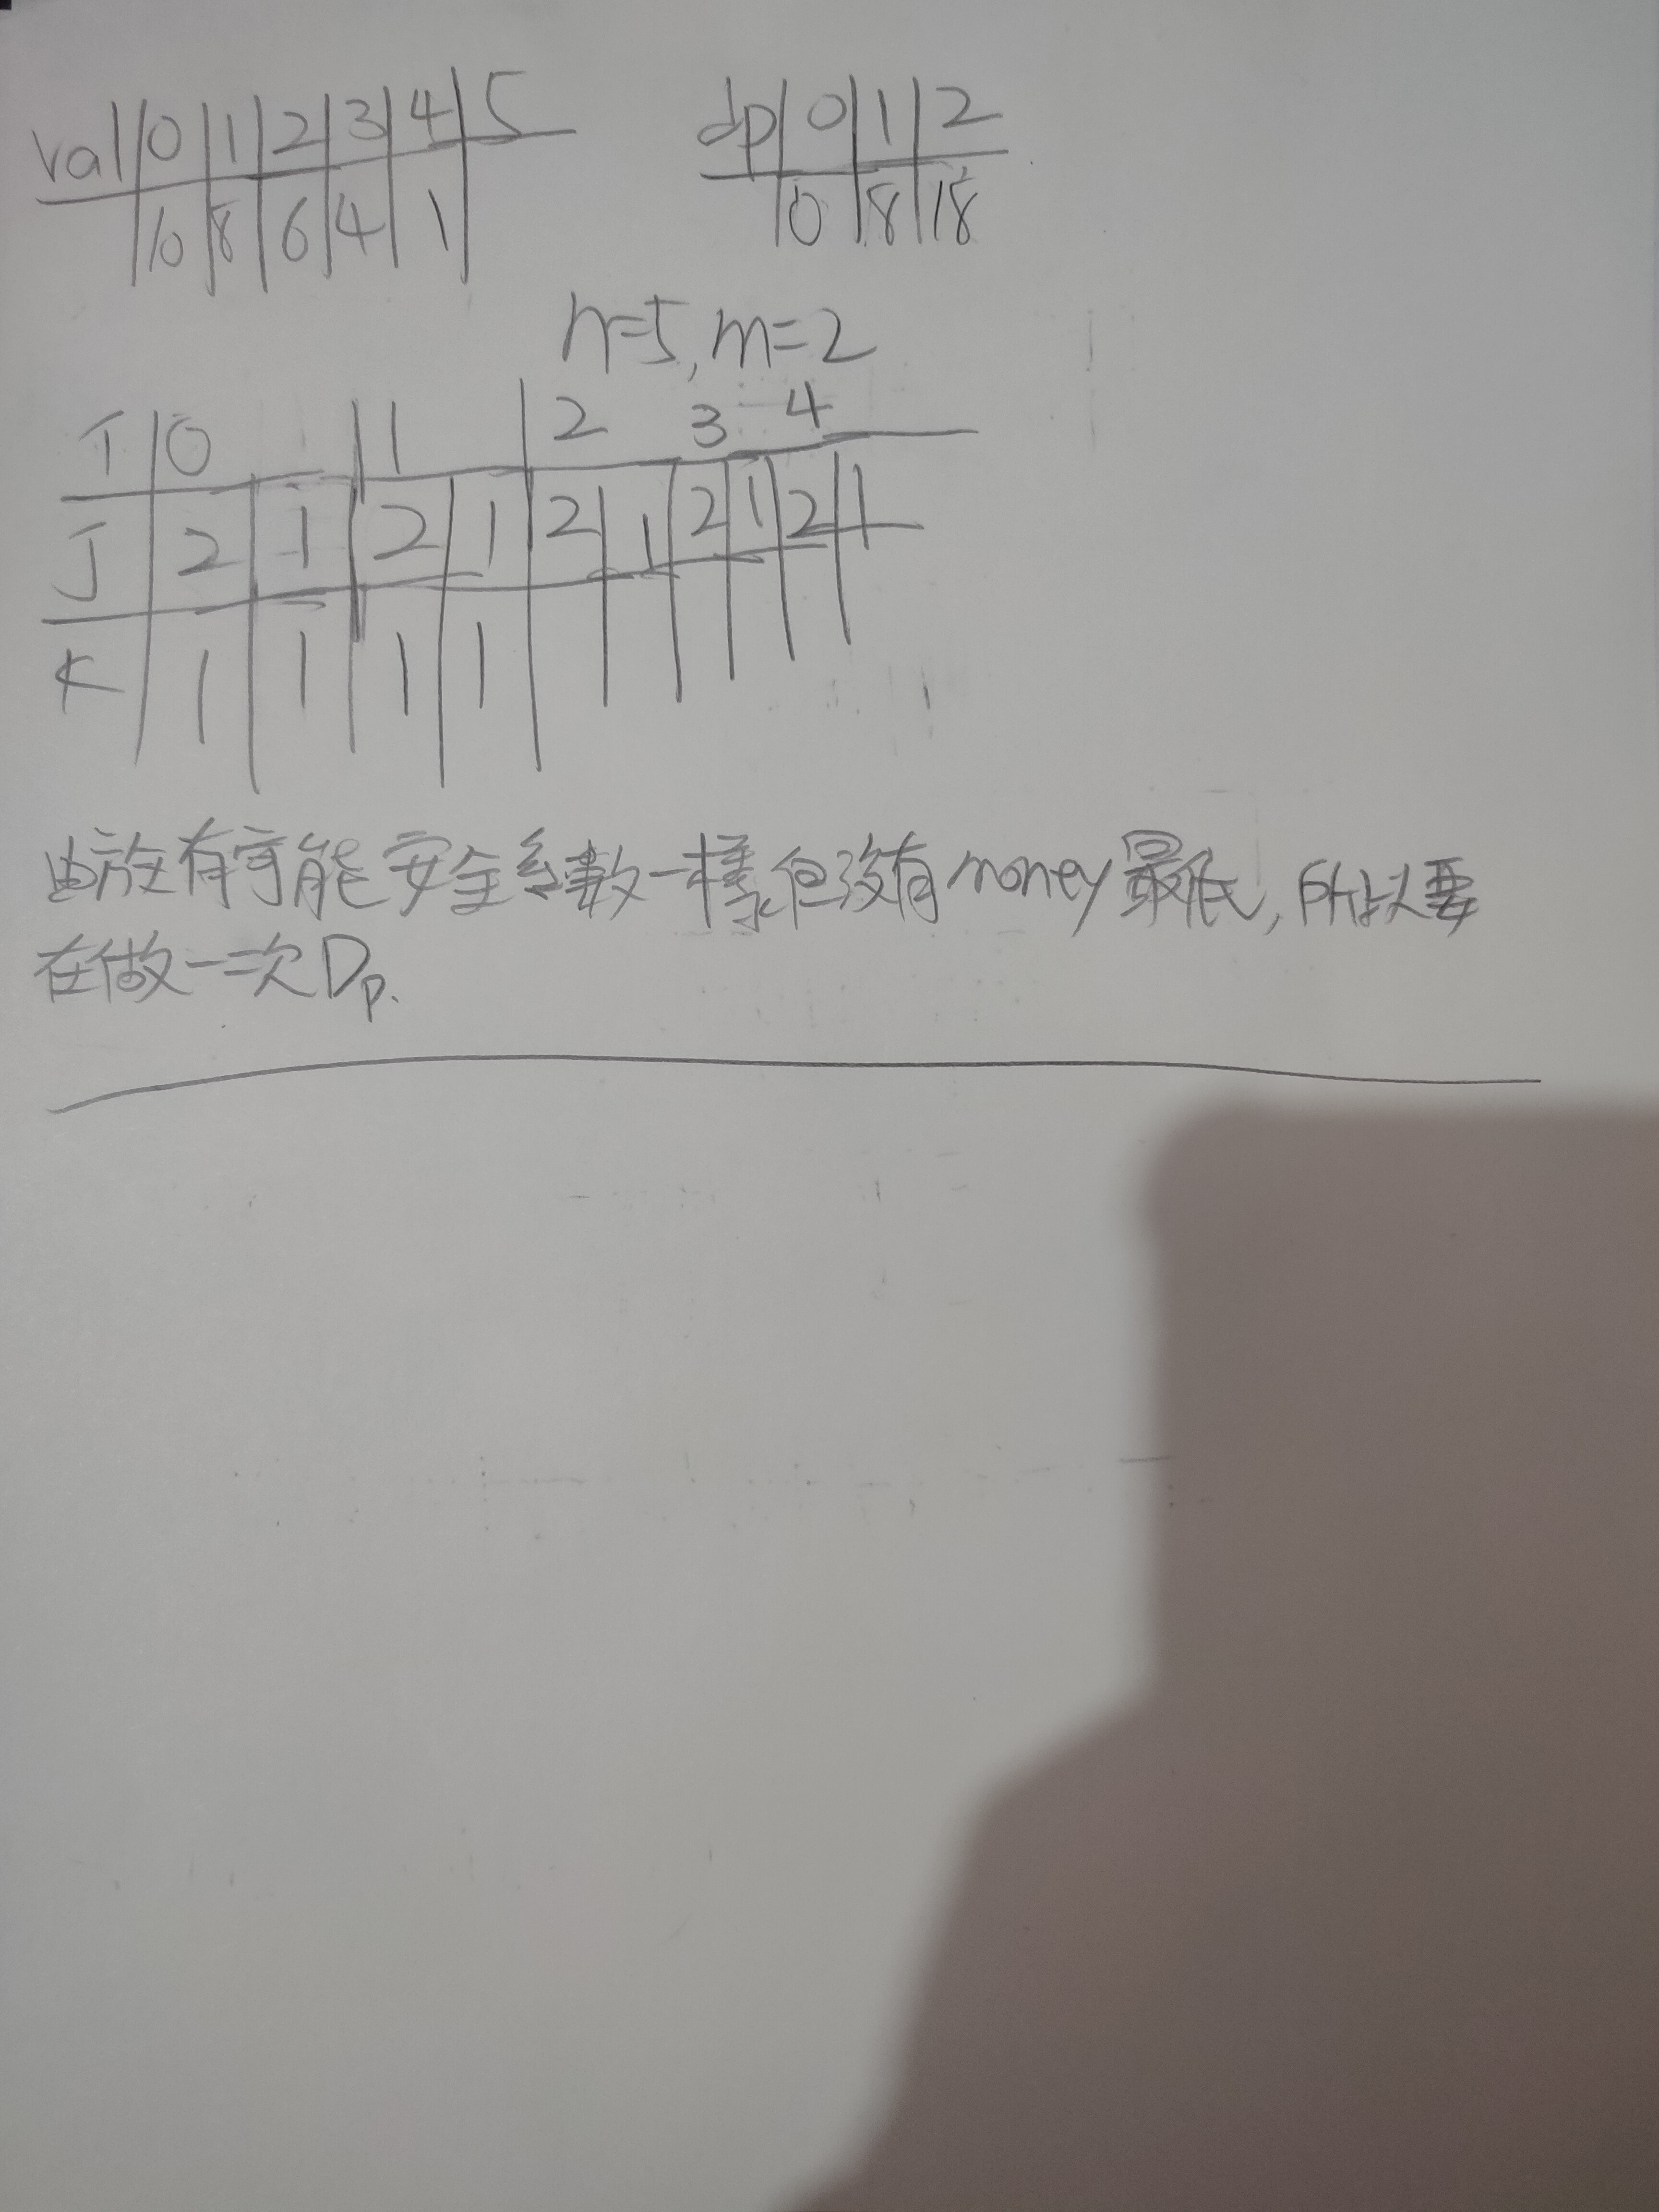 val 0 1 2 3 4 5
10 8 6 4 1
dp 0 1 2
0 8 18
n=5, m=2
I 0 1 2 3 4
J 2 1 2 1 2 1 2 1 2 1
K 1 1 1 1
由於有可能安全系數一樣但沒有money最低,所以要
在做一次Dp.